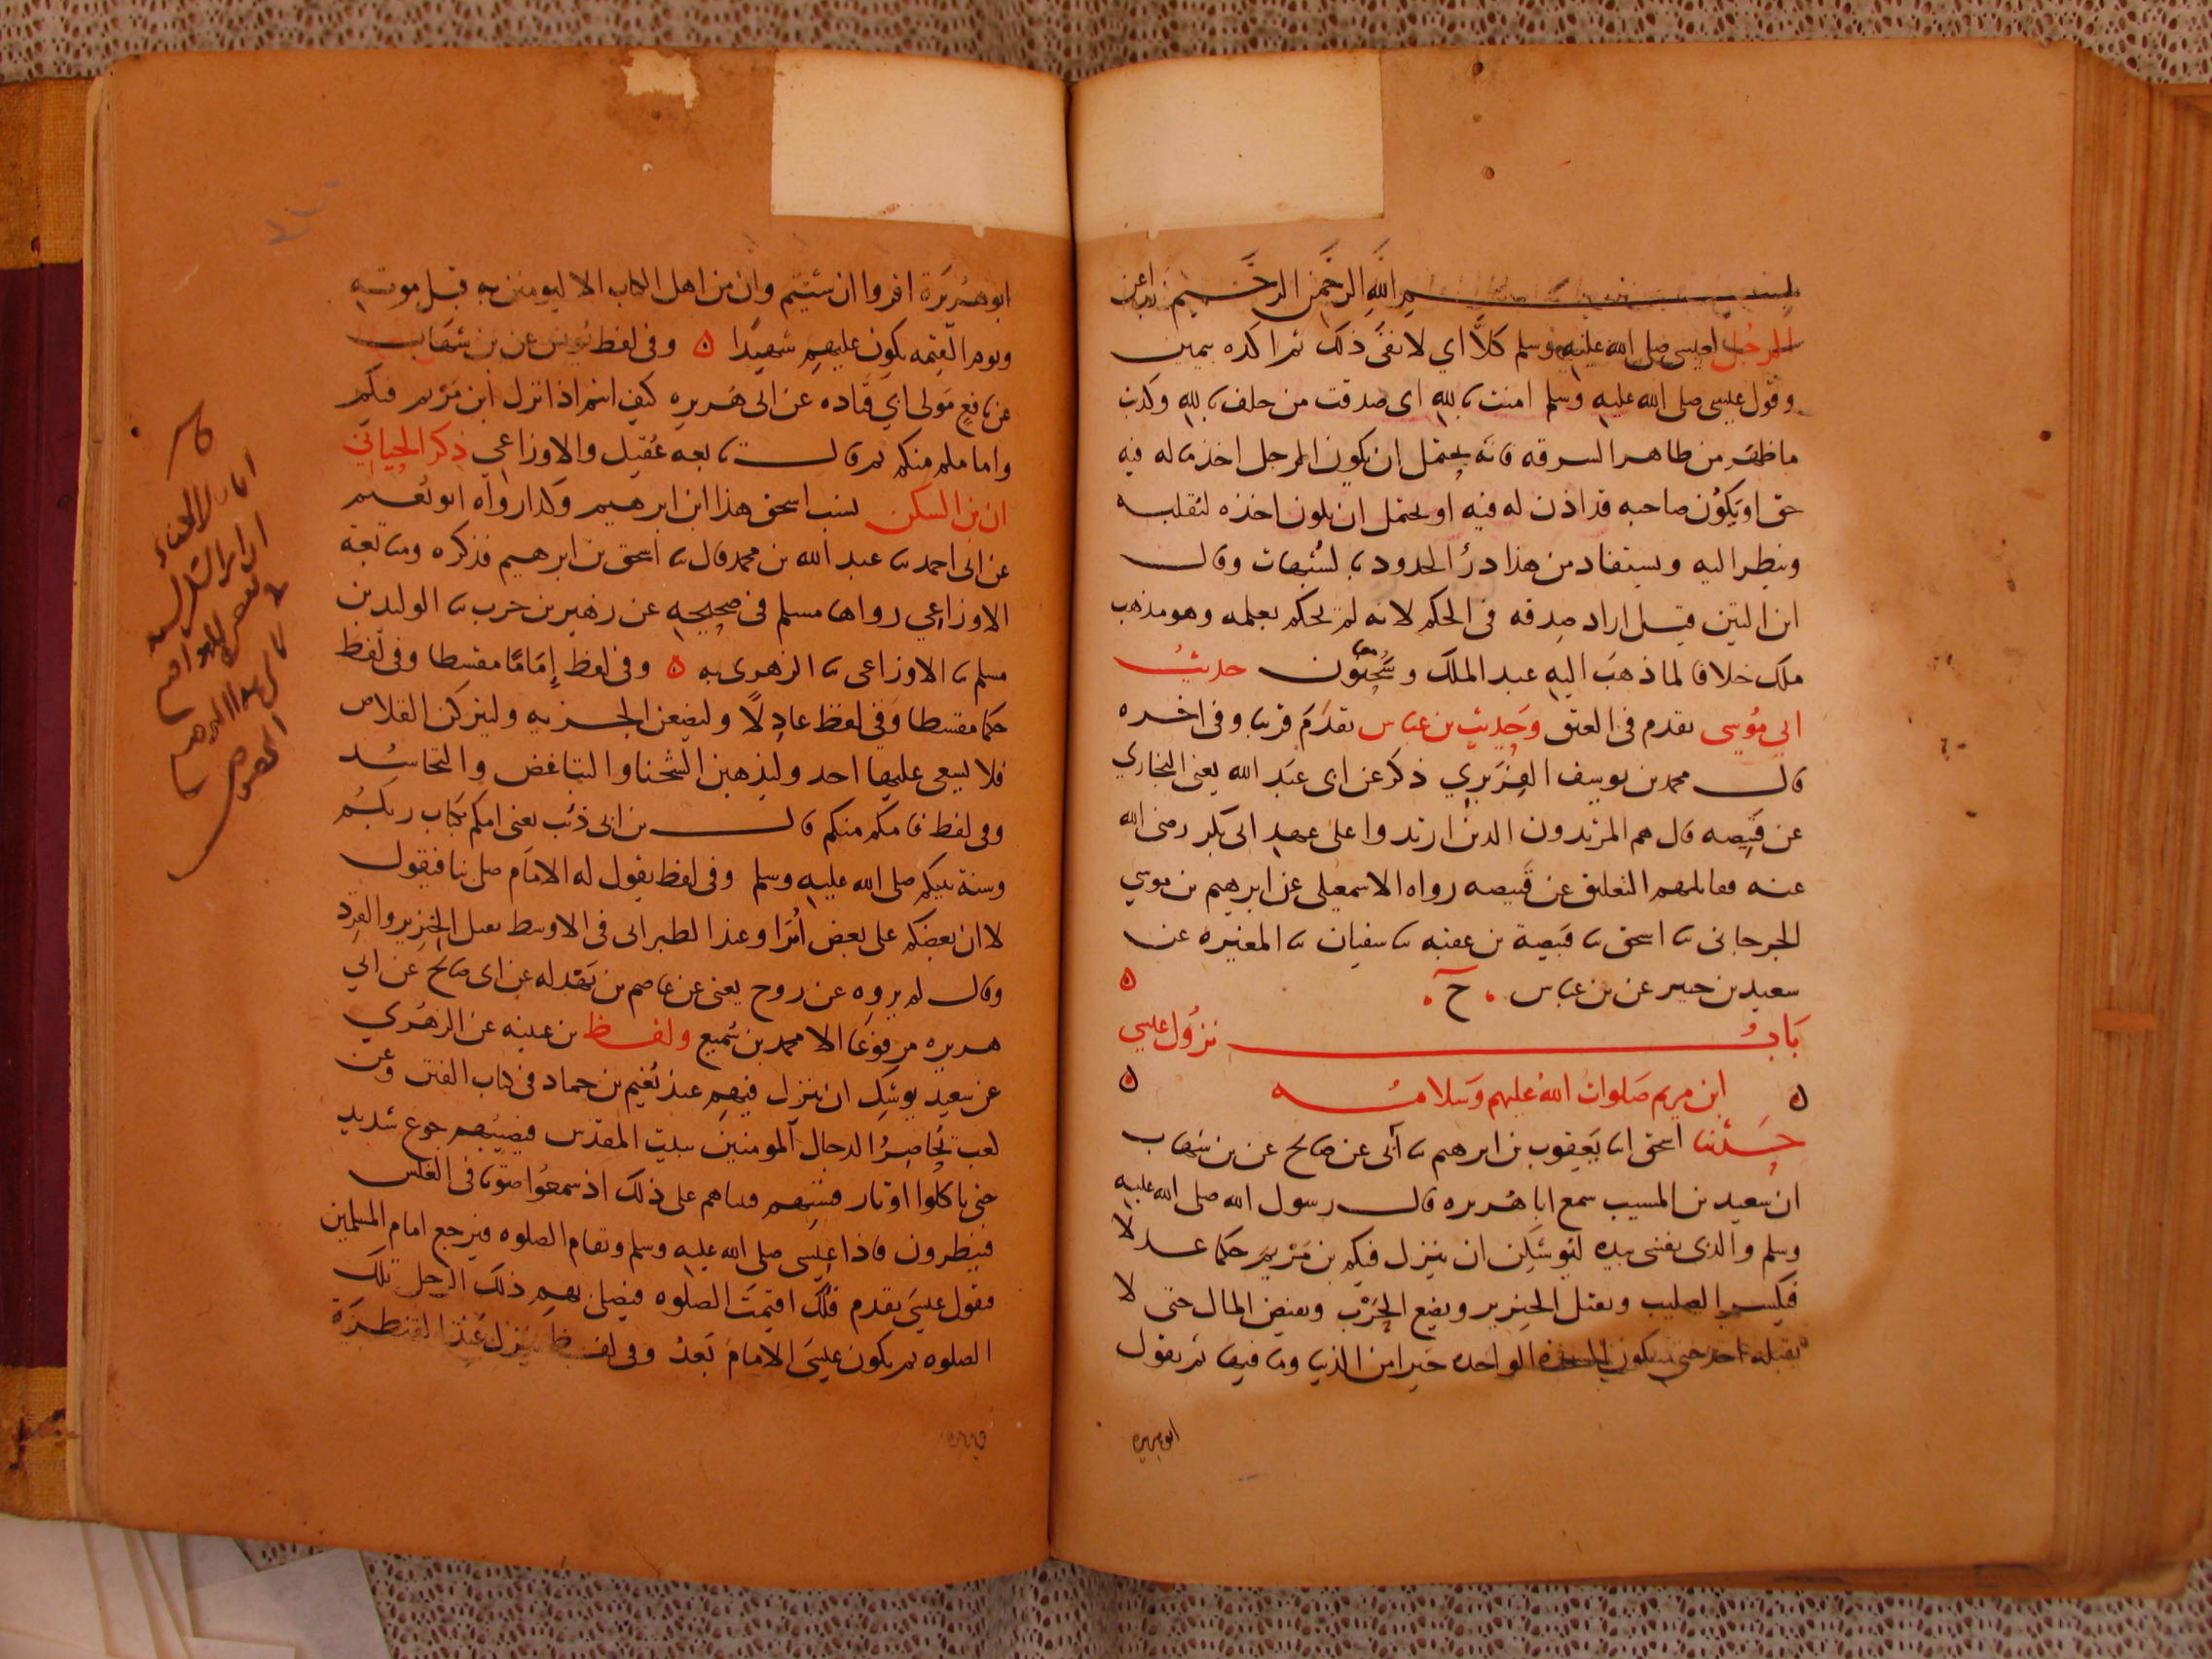 بسم الله الرحمن الرحيم رب اعن
الرجل لعيسى صلى الله عليه وسلم كلا اي لا نفى ذلك ثم اكده بيمين
وقول عيسى صلى الله عليه وسلم امنت بالله اى صدقت من حلف بالله وكذبت
ما ظهر من ظاهر السرقه فانه يحتمل ان يكون الرجل اخذ ماله فيه
حق او يكون صاحبه قد اذن له فيه او يحتمل ان يكون اخذه ليقلبه
وينظر اليه ويستفاد من هذا درؤ الحدود بالشبهات وقال
ابن التين قيل اراد صدقه فى الحكم لانه لم يحكم بعلمه وهو مذهب
ملك خلافا لما ذهب اليه عبد الملك وسحنون حديث
ابي موسى تقدم فى العتق وحديث بن عباس تقدم قريبا وفى اخره
قال محمد بن يوسف الفربري ذكر عن ابى عبد الله يعنى البخاري
عن قبيصه قال هم المرتدون الذين ارتدوا على عهد ابى بكر رضى الله
عنه فقاتلهم التعليق عن قبيصه رواه الاسمعيلى عن ابرهيم بن موسي
الجرجانى ثنا اسحق ثنا قبيصة بن عقبه ثنا سفيان ثنا المغيره عن
سعيد بن جبير عن بن عباس . ح .
باب نزول عيسى
ابن مريم صلوات الله عليهم وسلامه
حدثنا اسحق انا يعقوب بن ابرهيم ثنا أبى عن صالح عن بن شهاب
ان سعيد بن المسيب سمع ابا هريره قال رسول الله صلى الله عليه
وسلم والذى نفسى بيده ليوشكن ان ينزل فيكم بن مريم حكما عدلا
فيكسر الصليب ويقتل الخنزير ويضع الحرب ويفيض المال حتى لا
يقبله احد حتى تكون السجده الواحده خيرا من الدنيا وما فيها ثم يقول
ابو هريره
ابو هريرة اقروا ان شئتم وان من اهل الكتاب الا ليومنن به قبل موته
ويوم القيمه يكون عليهم شهيدا ه وفى لفظ يونس عن بن شهاب
عن نافع مولى ابي قتاده عن ابى هريره كيف انتم اذا نزل ابن مريم فيكم
واماملم منكم ثم قال تابعه عقيل والاوزاعي ذكر الجياني
ان بن السكن نسب اسحق هذا ابن ابرهيم وكذا رواه ابو نعيم
عن ابى احمد ثنا عبد الله بن محمد قال ثنا اسحق بن ابرهيم فذكره ومتابعة
الاوزاعي رواها مسلم فى صحيحه عن زهير بن حرب ثنا الوليد بن
مسلم ثنا الاوزاعى ثنا الزهرى به ه وفى لفظ إماما مقسطا وفى لفظ
حكما مقسطا وفي لفظ عادلا وليضعن الجزيه وليتركن القلاص
فلا يسعى عليها احد وليذهبن الشحنا والتباغض والتحاسد
وفى لفظ فامكم منكم قال بن ابى ذئب يعنى امكم بكتاب ربكم
وسنة نبيكم صلى الله عليه وسلم وفى لفظ يقول له الامام صل بنا فيقول
لا ان بعضكم على بعض أمرا وعند الطبرانى فى الاوسط يقتل الخنزير والقرد
وقال لم يروه عن روح يعنى عن عاصم بن بهدله عن ابى صالح عن ابي
هريره مرفوعا الا محمد بن سميع ولفظ بن عيينه عن الزهري
عن سعيد يوشك ان ينزل فيهم عند نعيم بن حماد فى كتاب الفتن وعن
كعب يحاصر الدجال المومنين ببيت المقدس فيصيبهم جوع شديد
حتى ياكلوا اوتار قسيهم فبيناهم على ذلك اذ سمعوا صوتا فى الغلس
فينظرون فاذا عيسى صلى الله عليه وسلم وتقام الصلوه فيرجع امام المسلمين
فيقول عيسى تقدم فلك اقيمت الصلوه فيصلى بهم ذلك الرجل تلك
الصلوه ثم يكون عيسى الامام بعد وفى لفظ ينزل عند القنطرة